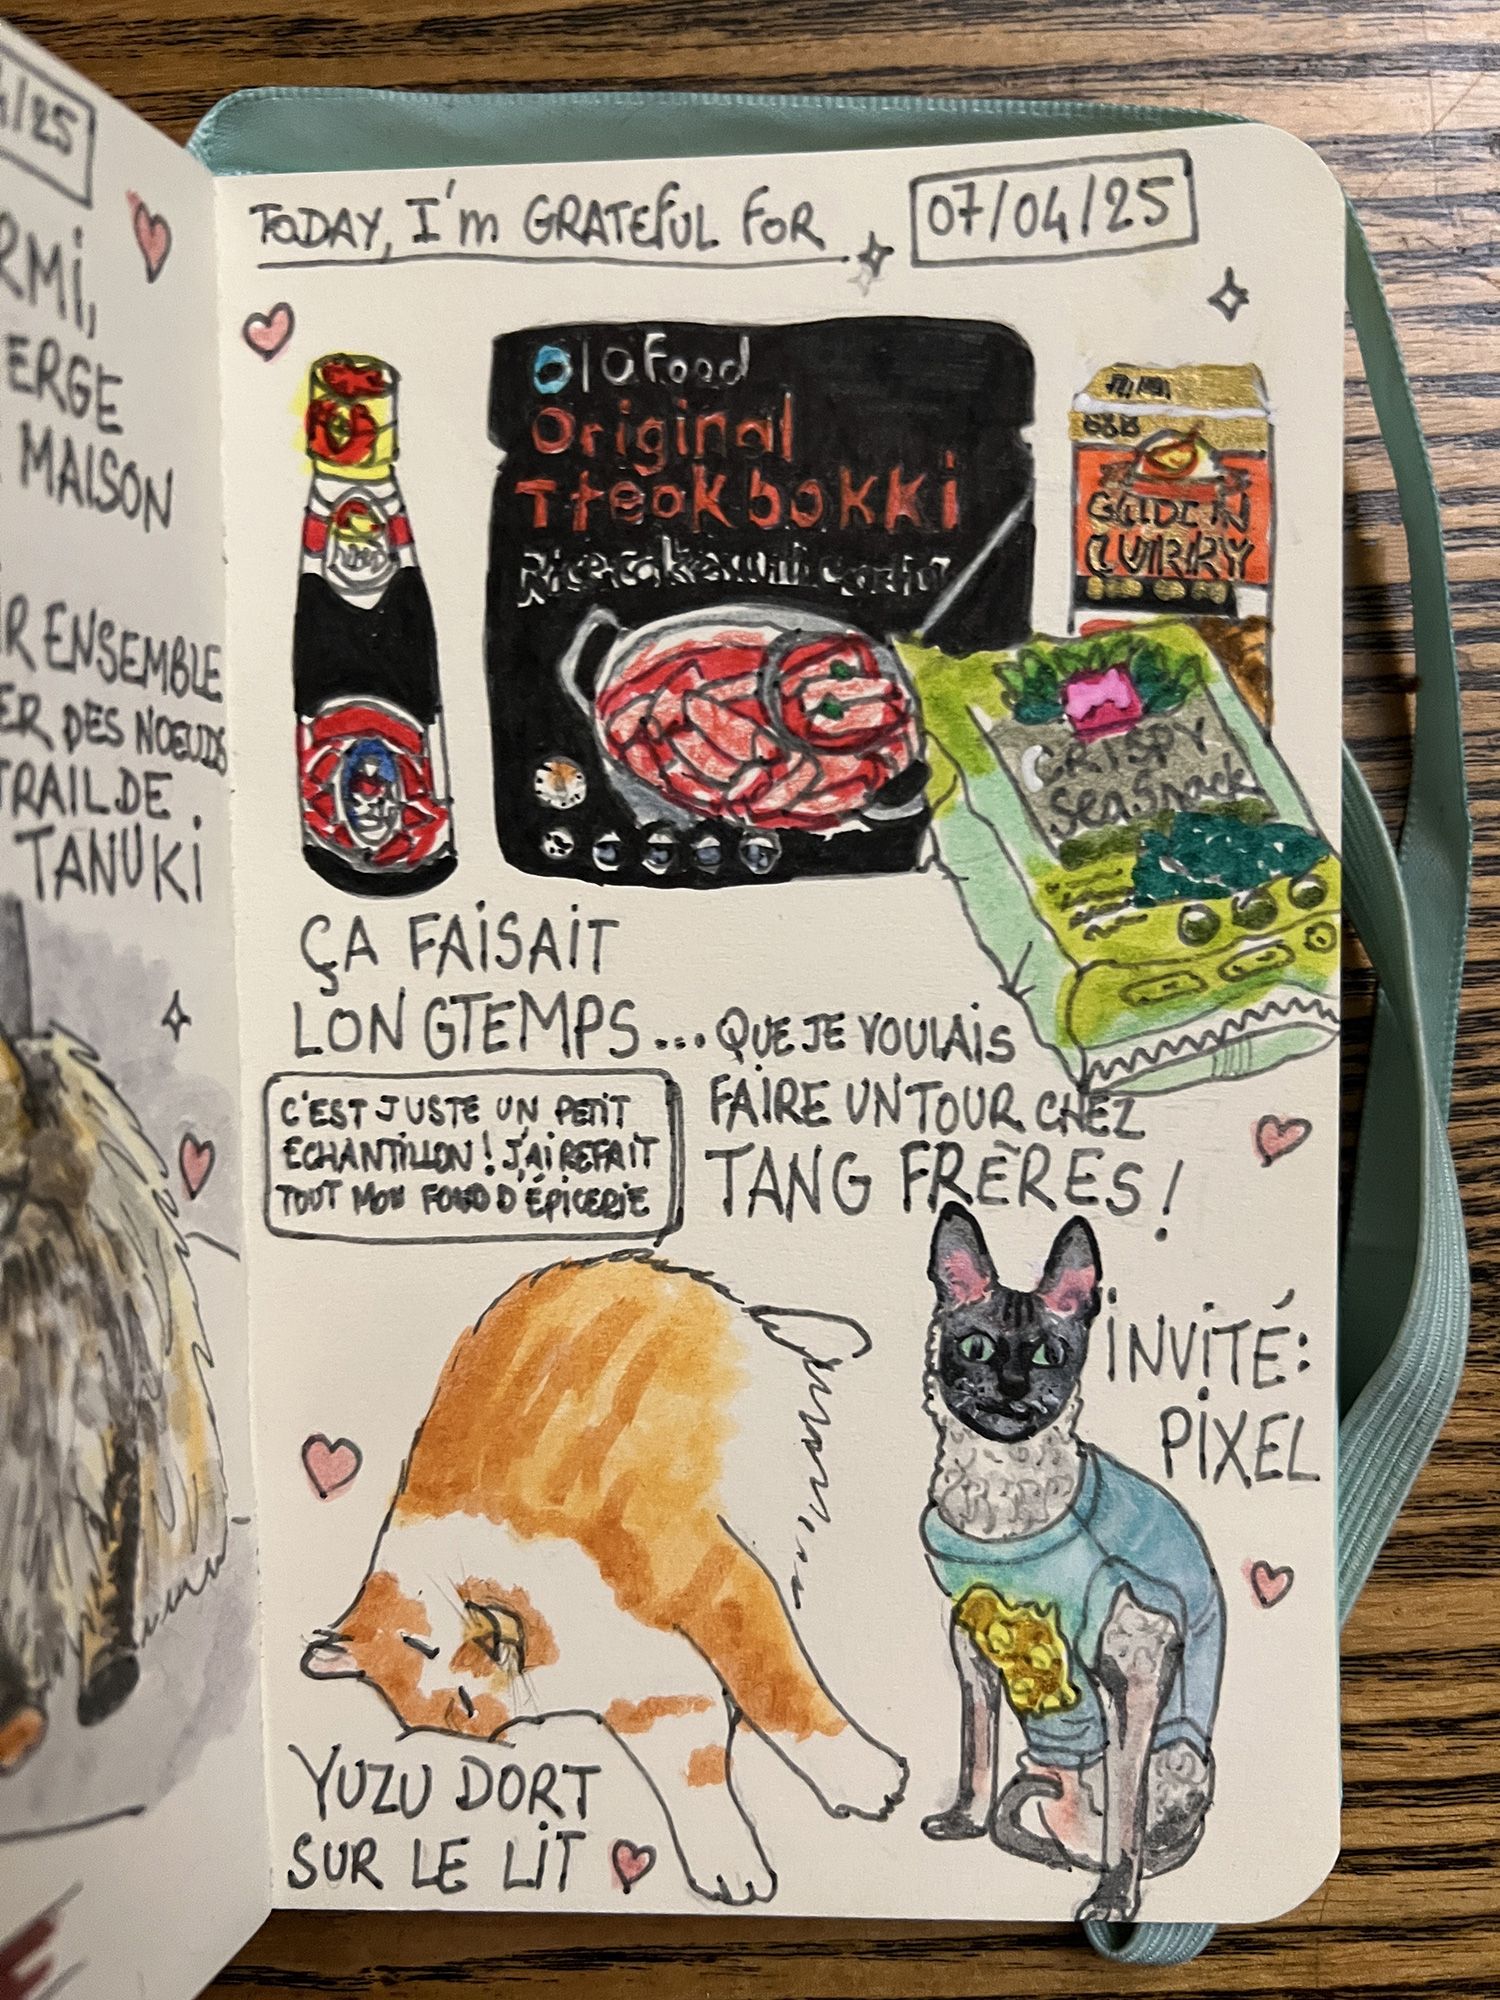 4/25
RMi,
ERGE
MAiSON
R ENSEMBLE
ER DES NOEUDS
TRAIL DE
TANUKi
TODAY, I'm GRATEFUL FOR
07/04/25
O'Food
Original
Tteokbokki
CURRY
CRISPY
Sea Snack
ÇA FAiSAiT
LONGTEMPS... QUE JE VOULAiS
FAiRE UN TOUR CHEZ
TANG FRÈRES !
C'EST JUSTE UN PETiT
ECHANTiLLON ! J'Ai REFAiT
TOUT MON FOND D'ÉPiCERiE
iNViTÉ :
PiXEL
YUZU DORT
SUR LE LiT